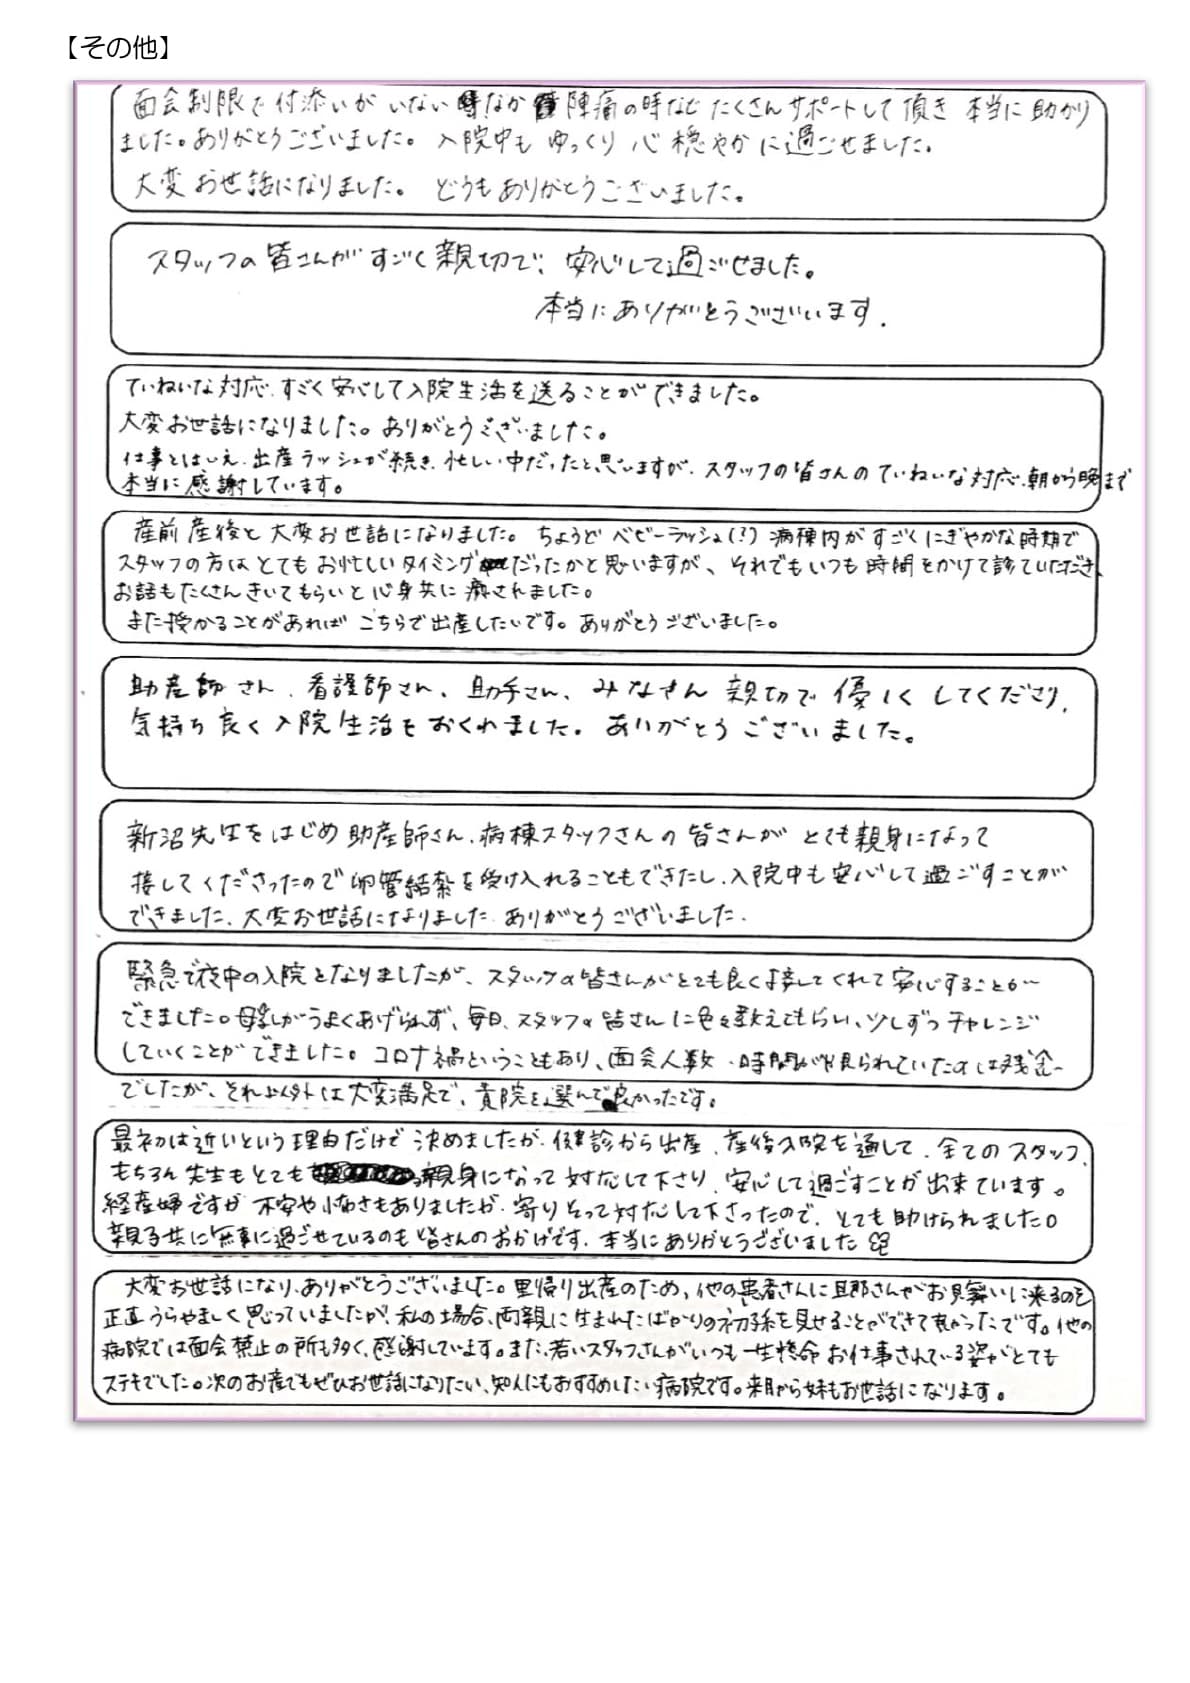 【その他】
面会制限で付添いがいないなか陣痛の時などたくさんサポートして頂き 本当に助かり
ました。ありがとうございました。入院中も ゆっくり 心穏やかに過ごせました。
大変お世話になりました。 どうもありがとうございました。
スタッフの皆さんがすごく親切で、安心して過ごせました。
本当にありがとうございます.
ていねいな対応、すごく安心して入院生活を送ることができました。
大変お世話になりました。ありがとうございました。
仕事とはいえ、出産ラッシュが続き、忙しい中だったと思いますが、スタッフの皆さんのていねいな対応、朝から晩まで
本当に感謝しています。
産前産後と大変お世話になりました。ちょうどベビーラッシュ(?)病棟内がすごくにぎやかな時期で
スタッフの方はとてもお忙しいタイミングだったかと思いますが、それでもいつも時間をかけて診ていただき、
お話もたくさんきいてもらいと心身共に癒されました。
また授かることがあればこちらで出産したいです。ありがとうございました。
助産師さん、看護師さん、助手さん、みなさん親切で優しくしてくださり、
気持ち良く入院生活をおくれました。ありがとうございました。
新沼先生をはじめ助産師さん、病棟スタッフさんの皆さんがとても親身になって
接してくださったので卵管結紮を受け入れることもできたし、入院中も安心して過ごすことが
できました。大変お世話になりました。ありがとうございました.
緊急で夜中の入院となりましたが、スタッフの皆さんがとても良く接してくれて安心することが
できました。母乳がうまくあげられず、毎日、スタッフの皆さんに色々教えてもらい、少しずつチャレンジ
していくことができました。コロナ禍ということもあり、面会人数・時間が限られていたのは残念
でしたが、それ以外は大変満足で、貴院を選んで良かったです。
最初は近いという理由だけで決めましたが、健診から出産、産後入院を通して、全てのスタッフ、
もちろん先生もとても親身になって対応して下さり、安心して過ごすことが出来ています。
経産婦ですが不安や怖さもありましたが、寄りそって対応して下さったので、とても助けられました。
親子共に無事に過ごせているのも皆さんのおかげです。本当にありがとうございました
大変お世話になり、ありがとうございました。里帰り出産のため、他の患者さんに旦那さんがお見舞いに来るのを
正直うらやましく思っていましたが、私の場合、両親に生まれたばかりの初孫を見せることができて良かったです。他の
病院では面会禁止の所も多く、感謝しています。また、若いスタッフさんがいつも一生懸命お仕事されている姿がとても
ステキでした。次のお産でもぜひお世話になりたい、知人にもおすすめしたい病院です。来月から妹もお世話になります。